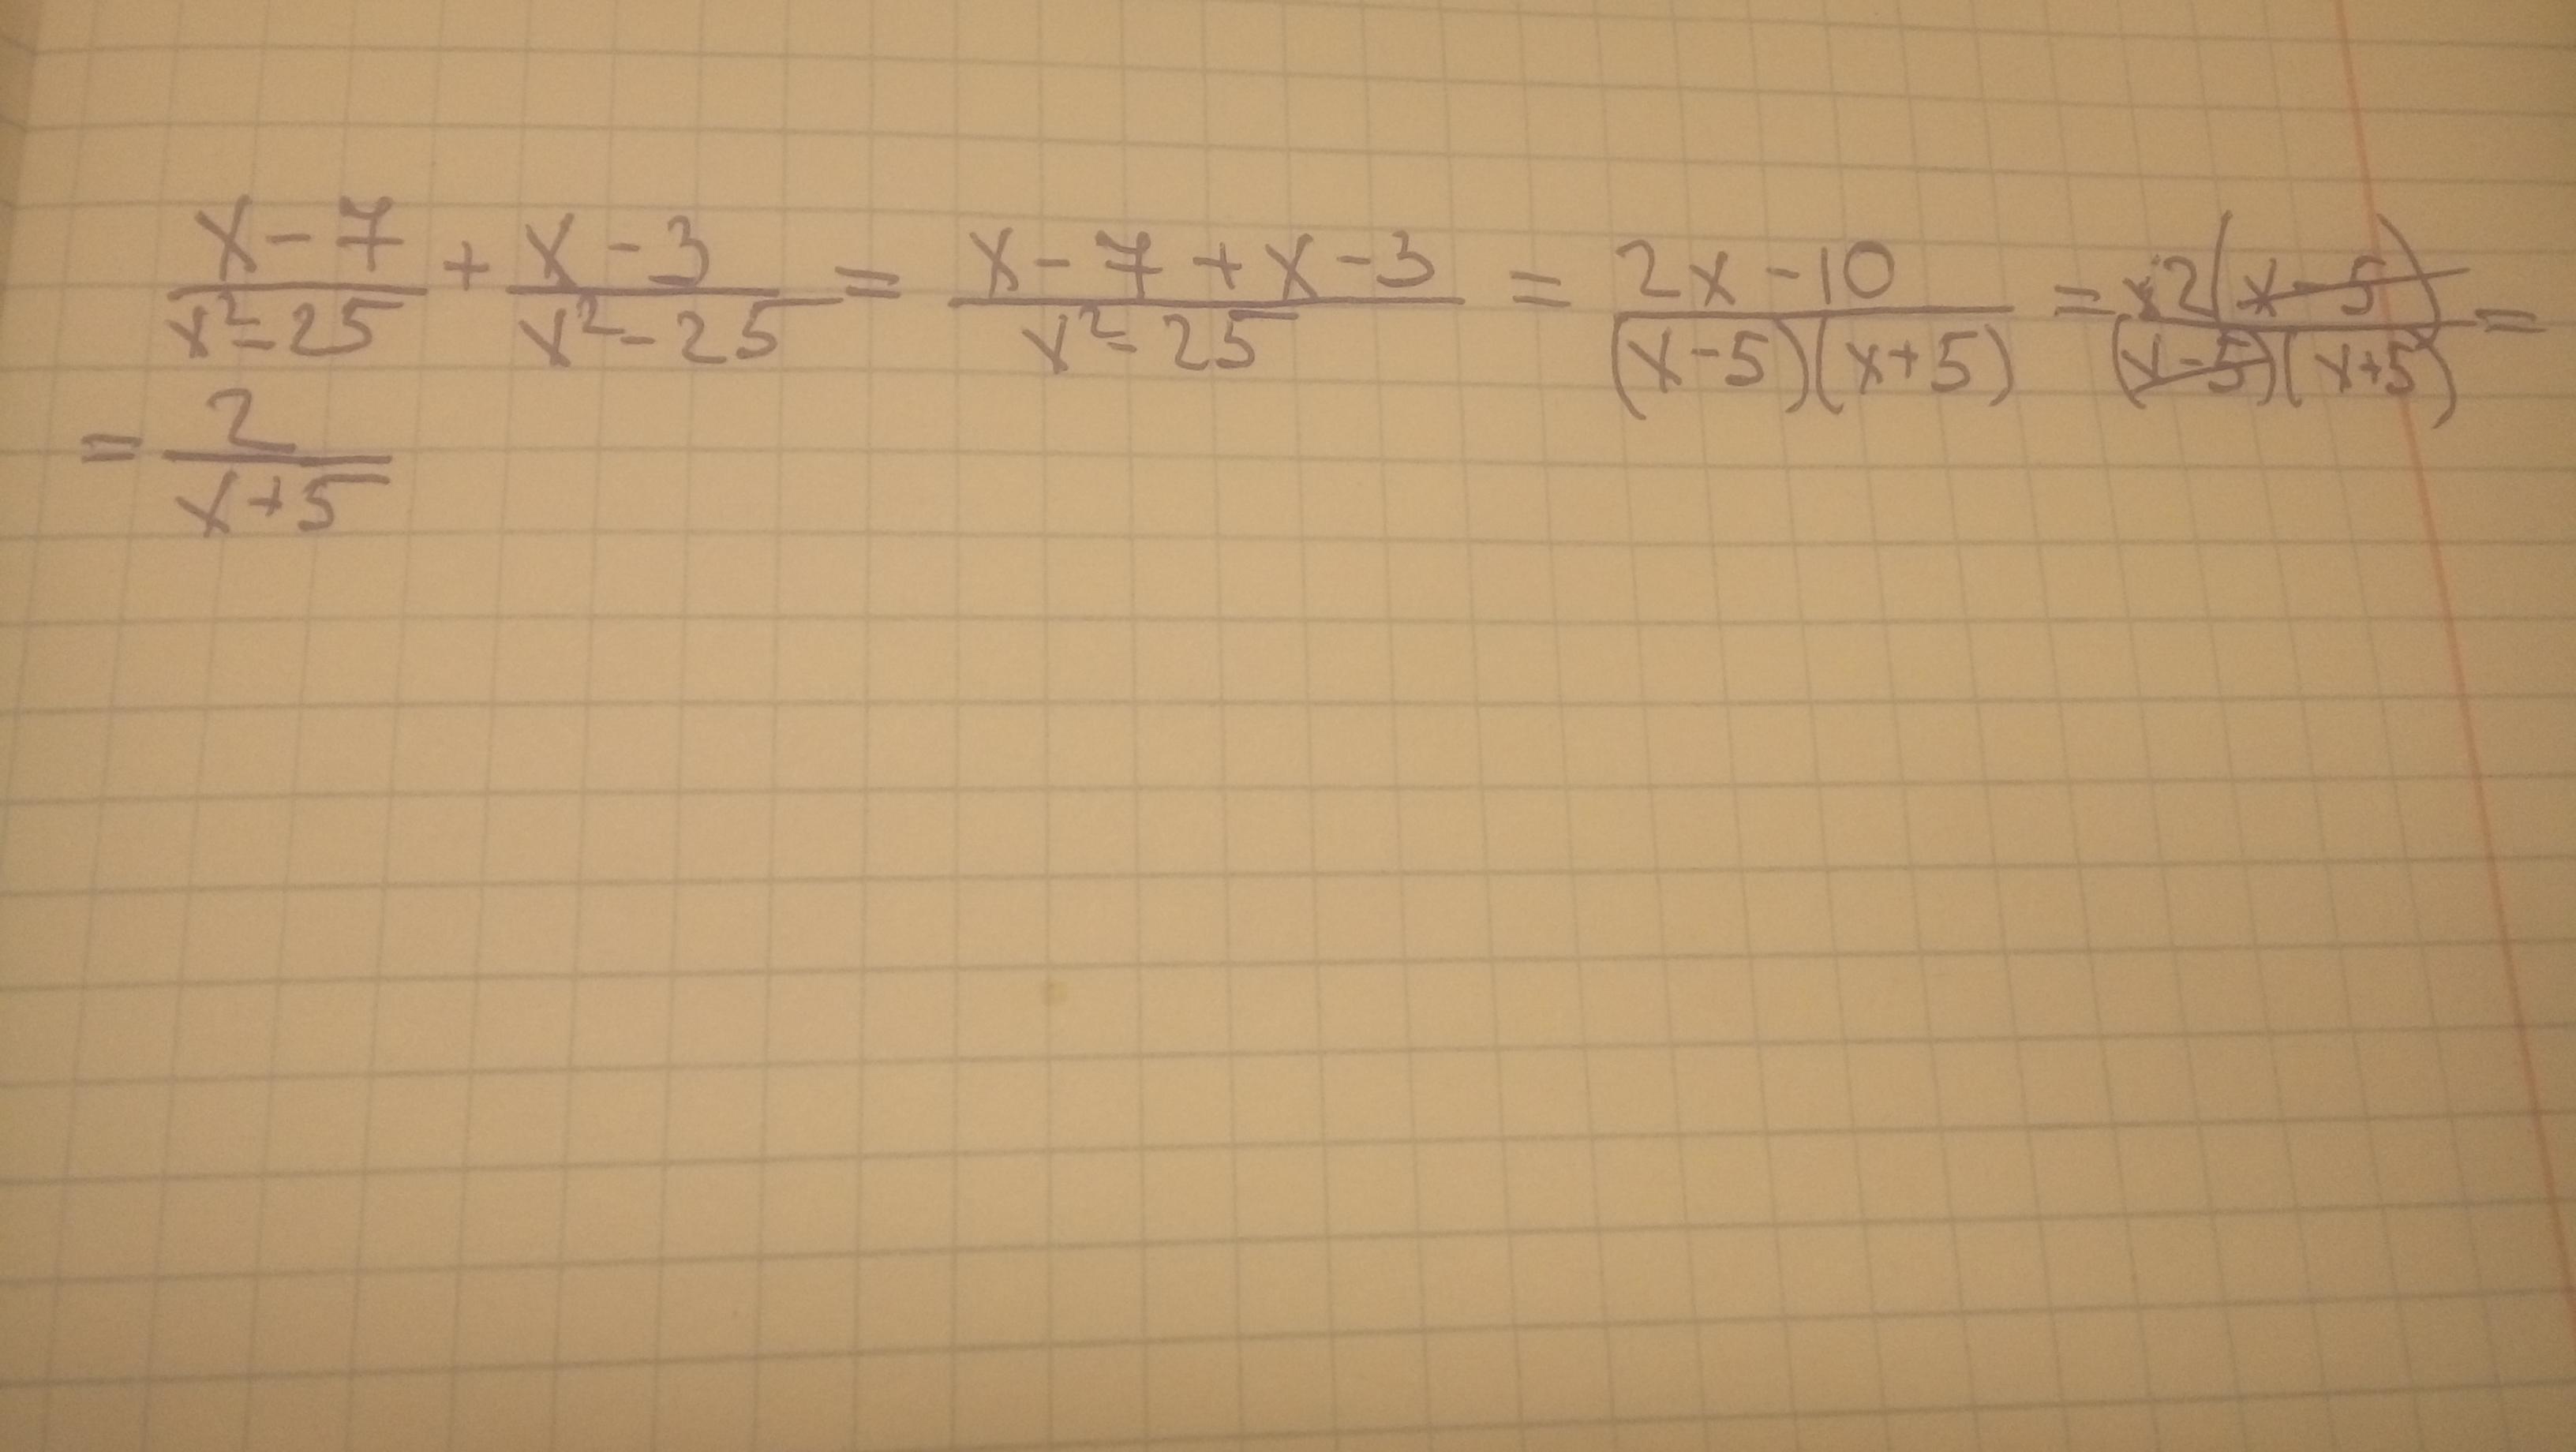 (x-7)/(x²-25) + (x-3)/(x²-25) = (x-7+x-3)/(x²-25) = (2x-10)/((x-5)(x+5)) = 2(x-5)/((x-5)(x+5)) =
= 2/(x+5)